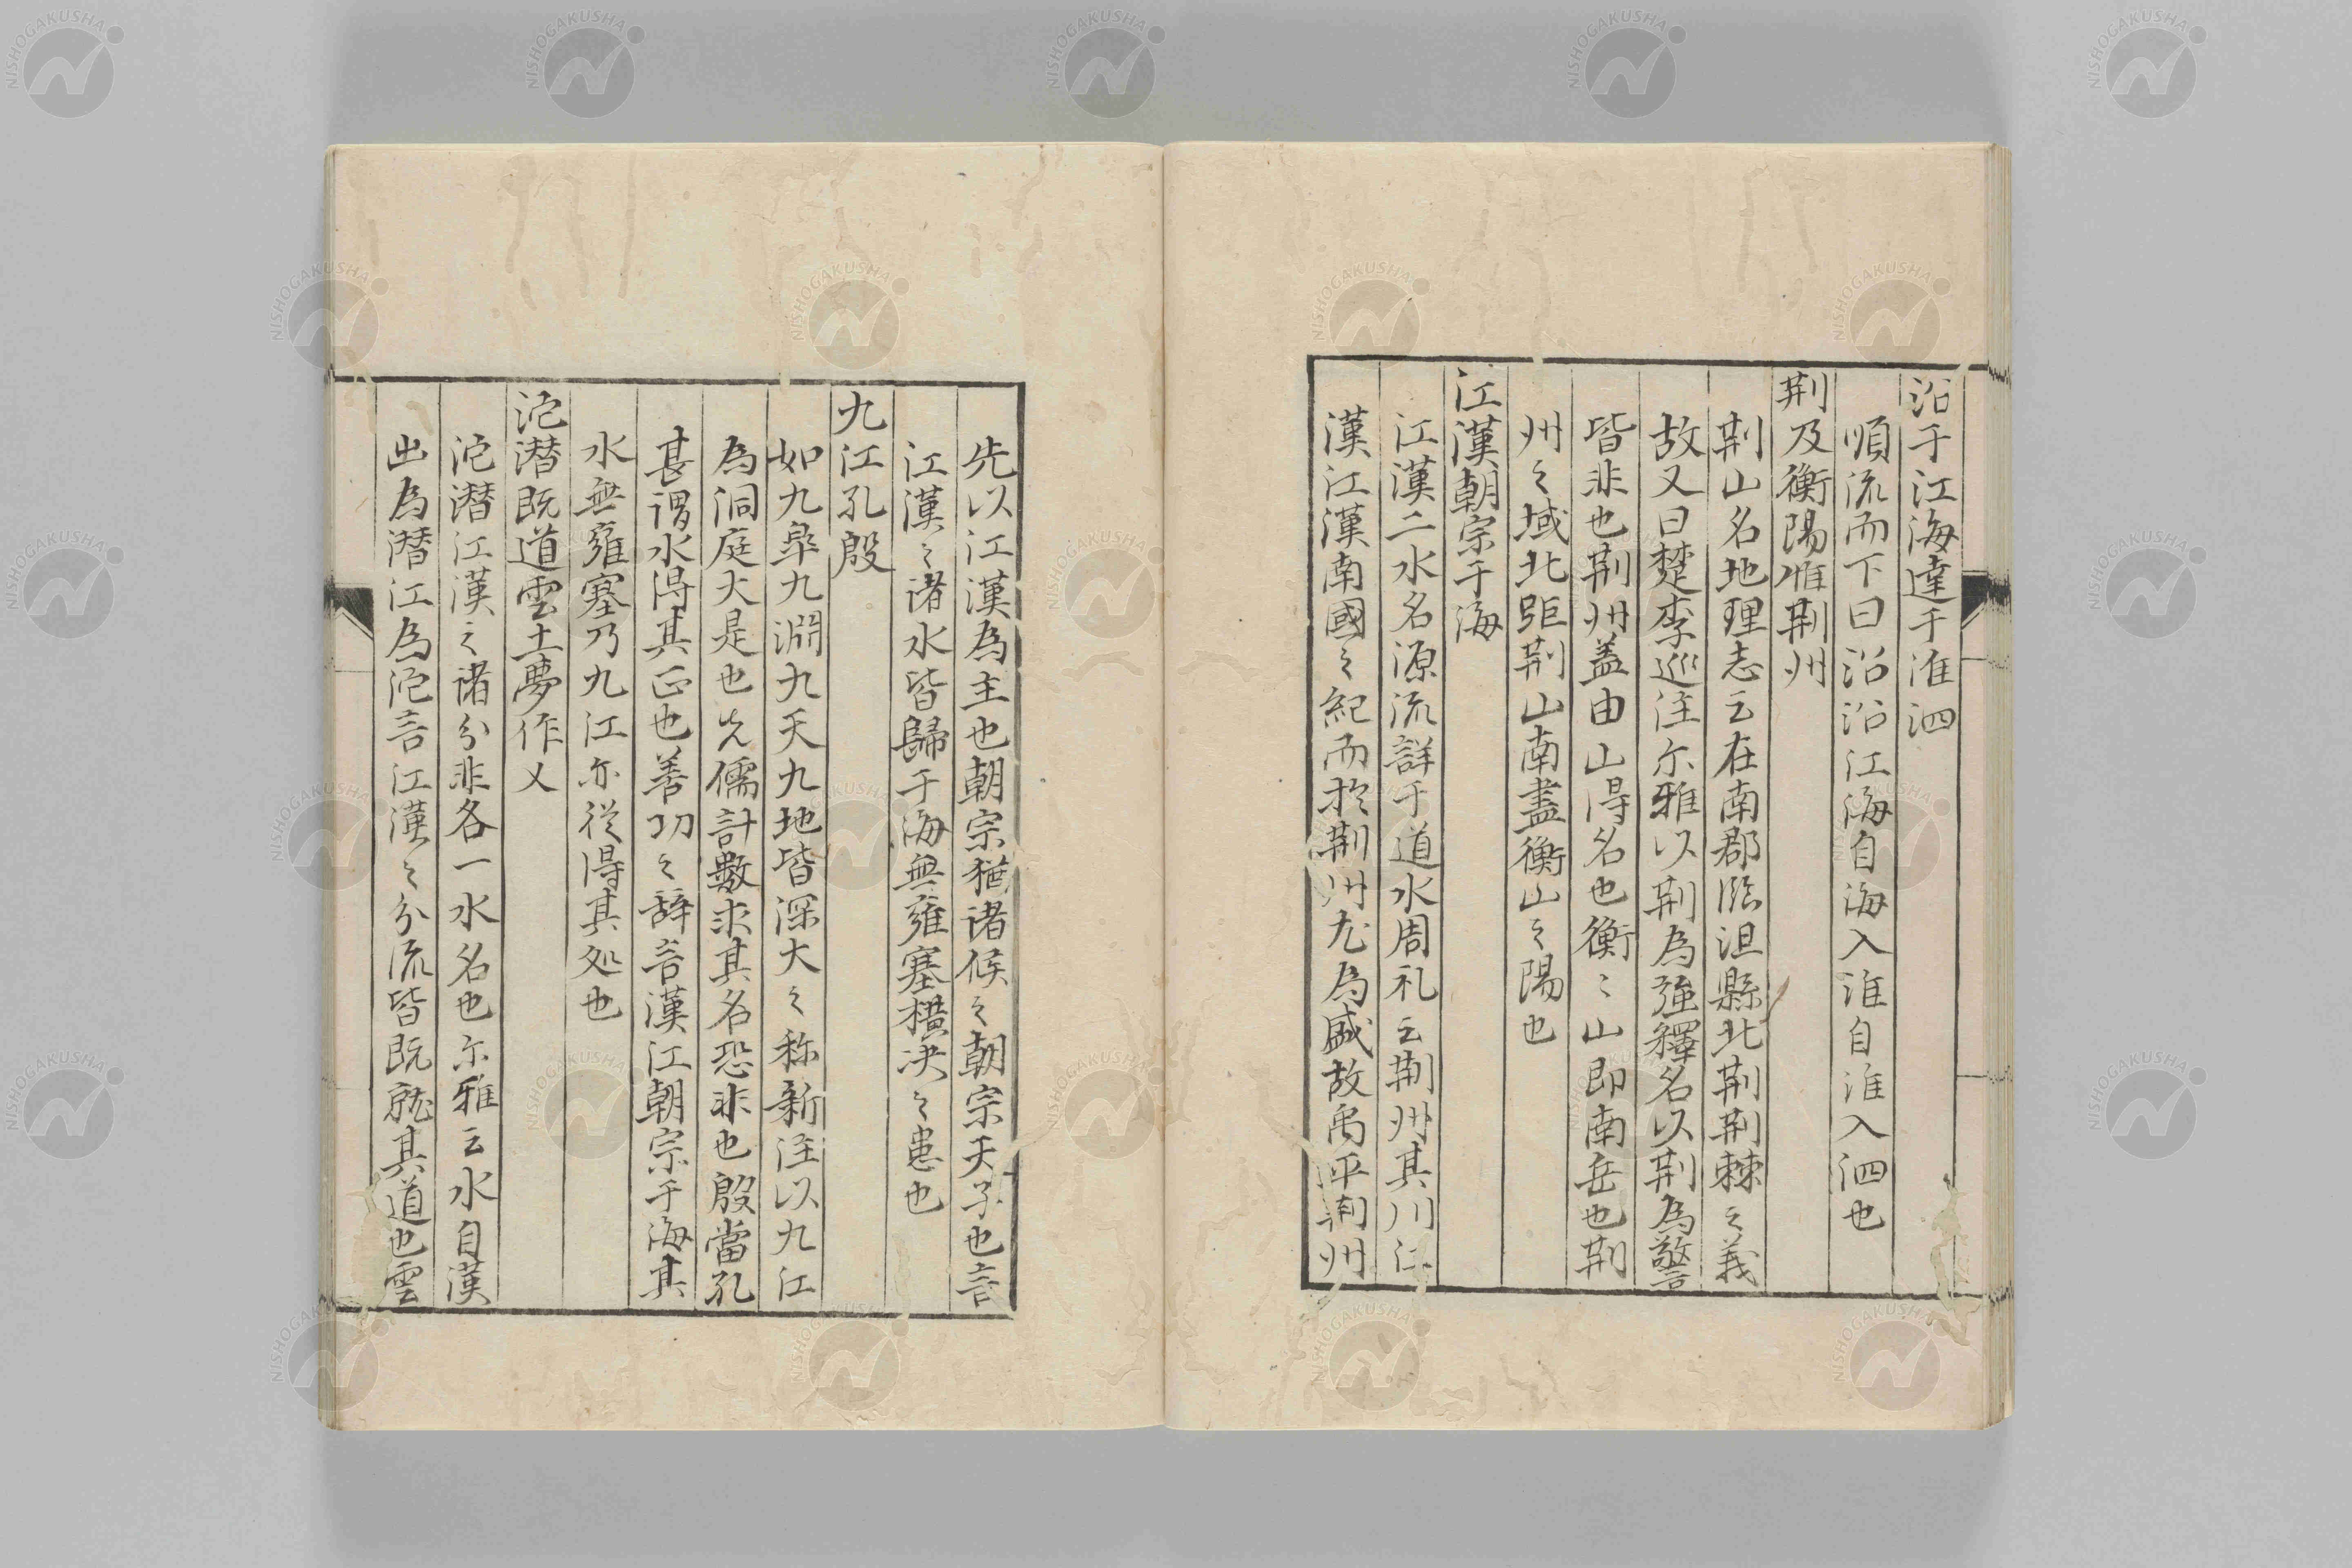 沿于江海達于淮泗
順流而下曰沿沿江海自海入淮自淮入泗也
荆及衡陽惟荆州
荆山名地理志云在南郡臨沮縣北荆荆棘之義
故又曰楚李巡注尓雅以荆為強釋名以荆為警
皆非也荆州盖由山得名也衡〻山即南岳也荆
州之域北距荆山南盡衡山之陽也
江漢朝宗于海
江漢二水名源流詳于道水周礼云荆州其川江
漢江漢南國之紀而於荆州尤為盛故禹平荆州
先以江漢為主也朝宗猶诸侯之朝宗天子也言
江漢之诸水皆歸于海無雍塞横决之患也
九江孔殷
如九皐九淵九天九地皆深大之称新注以九江
為洞庭大是也先儒計數求其名恐非也殷當孔
甚谓水得其正也善功之辞言漢江朝宗于海其
水無雍塞乃九江亦從得其処也
沱潜既道雲土夢作乂
沱潜江漢之诸分非各一水名也尓雅云水自漢
出為潜江為沱言江漢之分流皆既就其道也雲
NISHOGAKUSHA